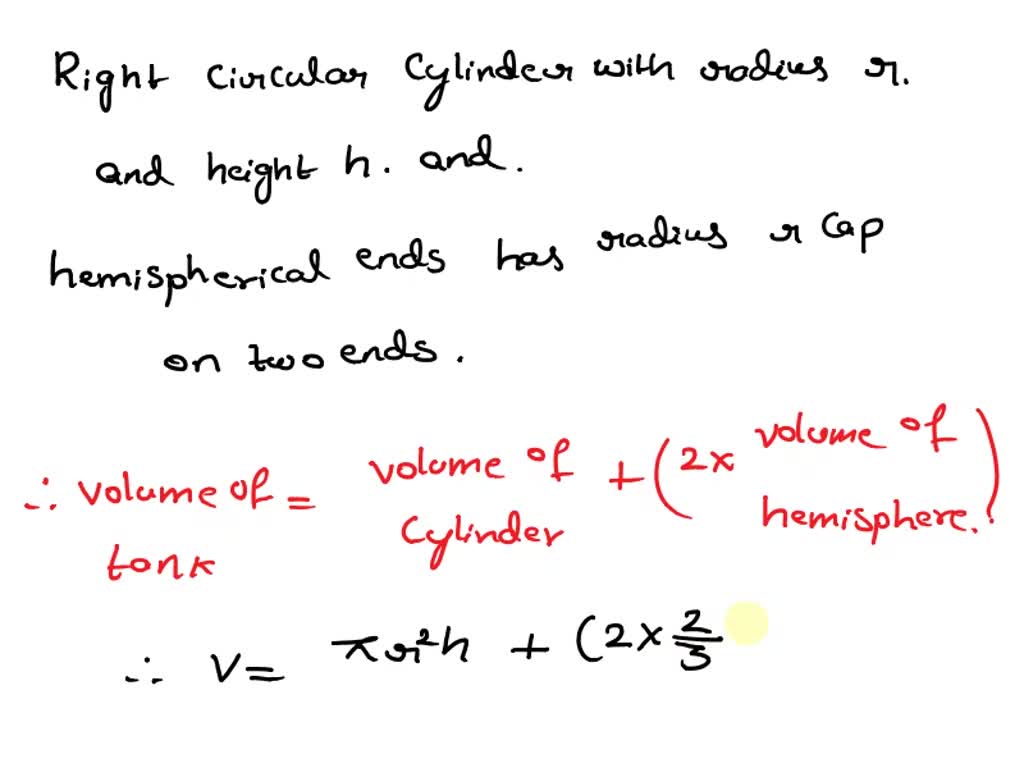 Right circular cylinder with radius r.
and height h. and.
hemispherical ends has radius r cap
on two ends.
∴ volume of tank = volume of cylinder + (2x volume of hemisphere.)
∴ V = πr²h + (2 × 2/3